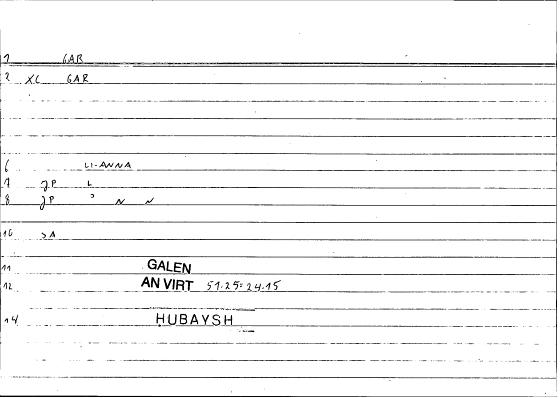 1 GAR
2 XC GAR
6 LI-ANNA
7 JP L
8 JP ' N N
10 SA
11 GALEN
12 AN VIRT 51.25=24.15
14 HUBAYSH